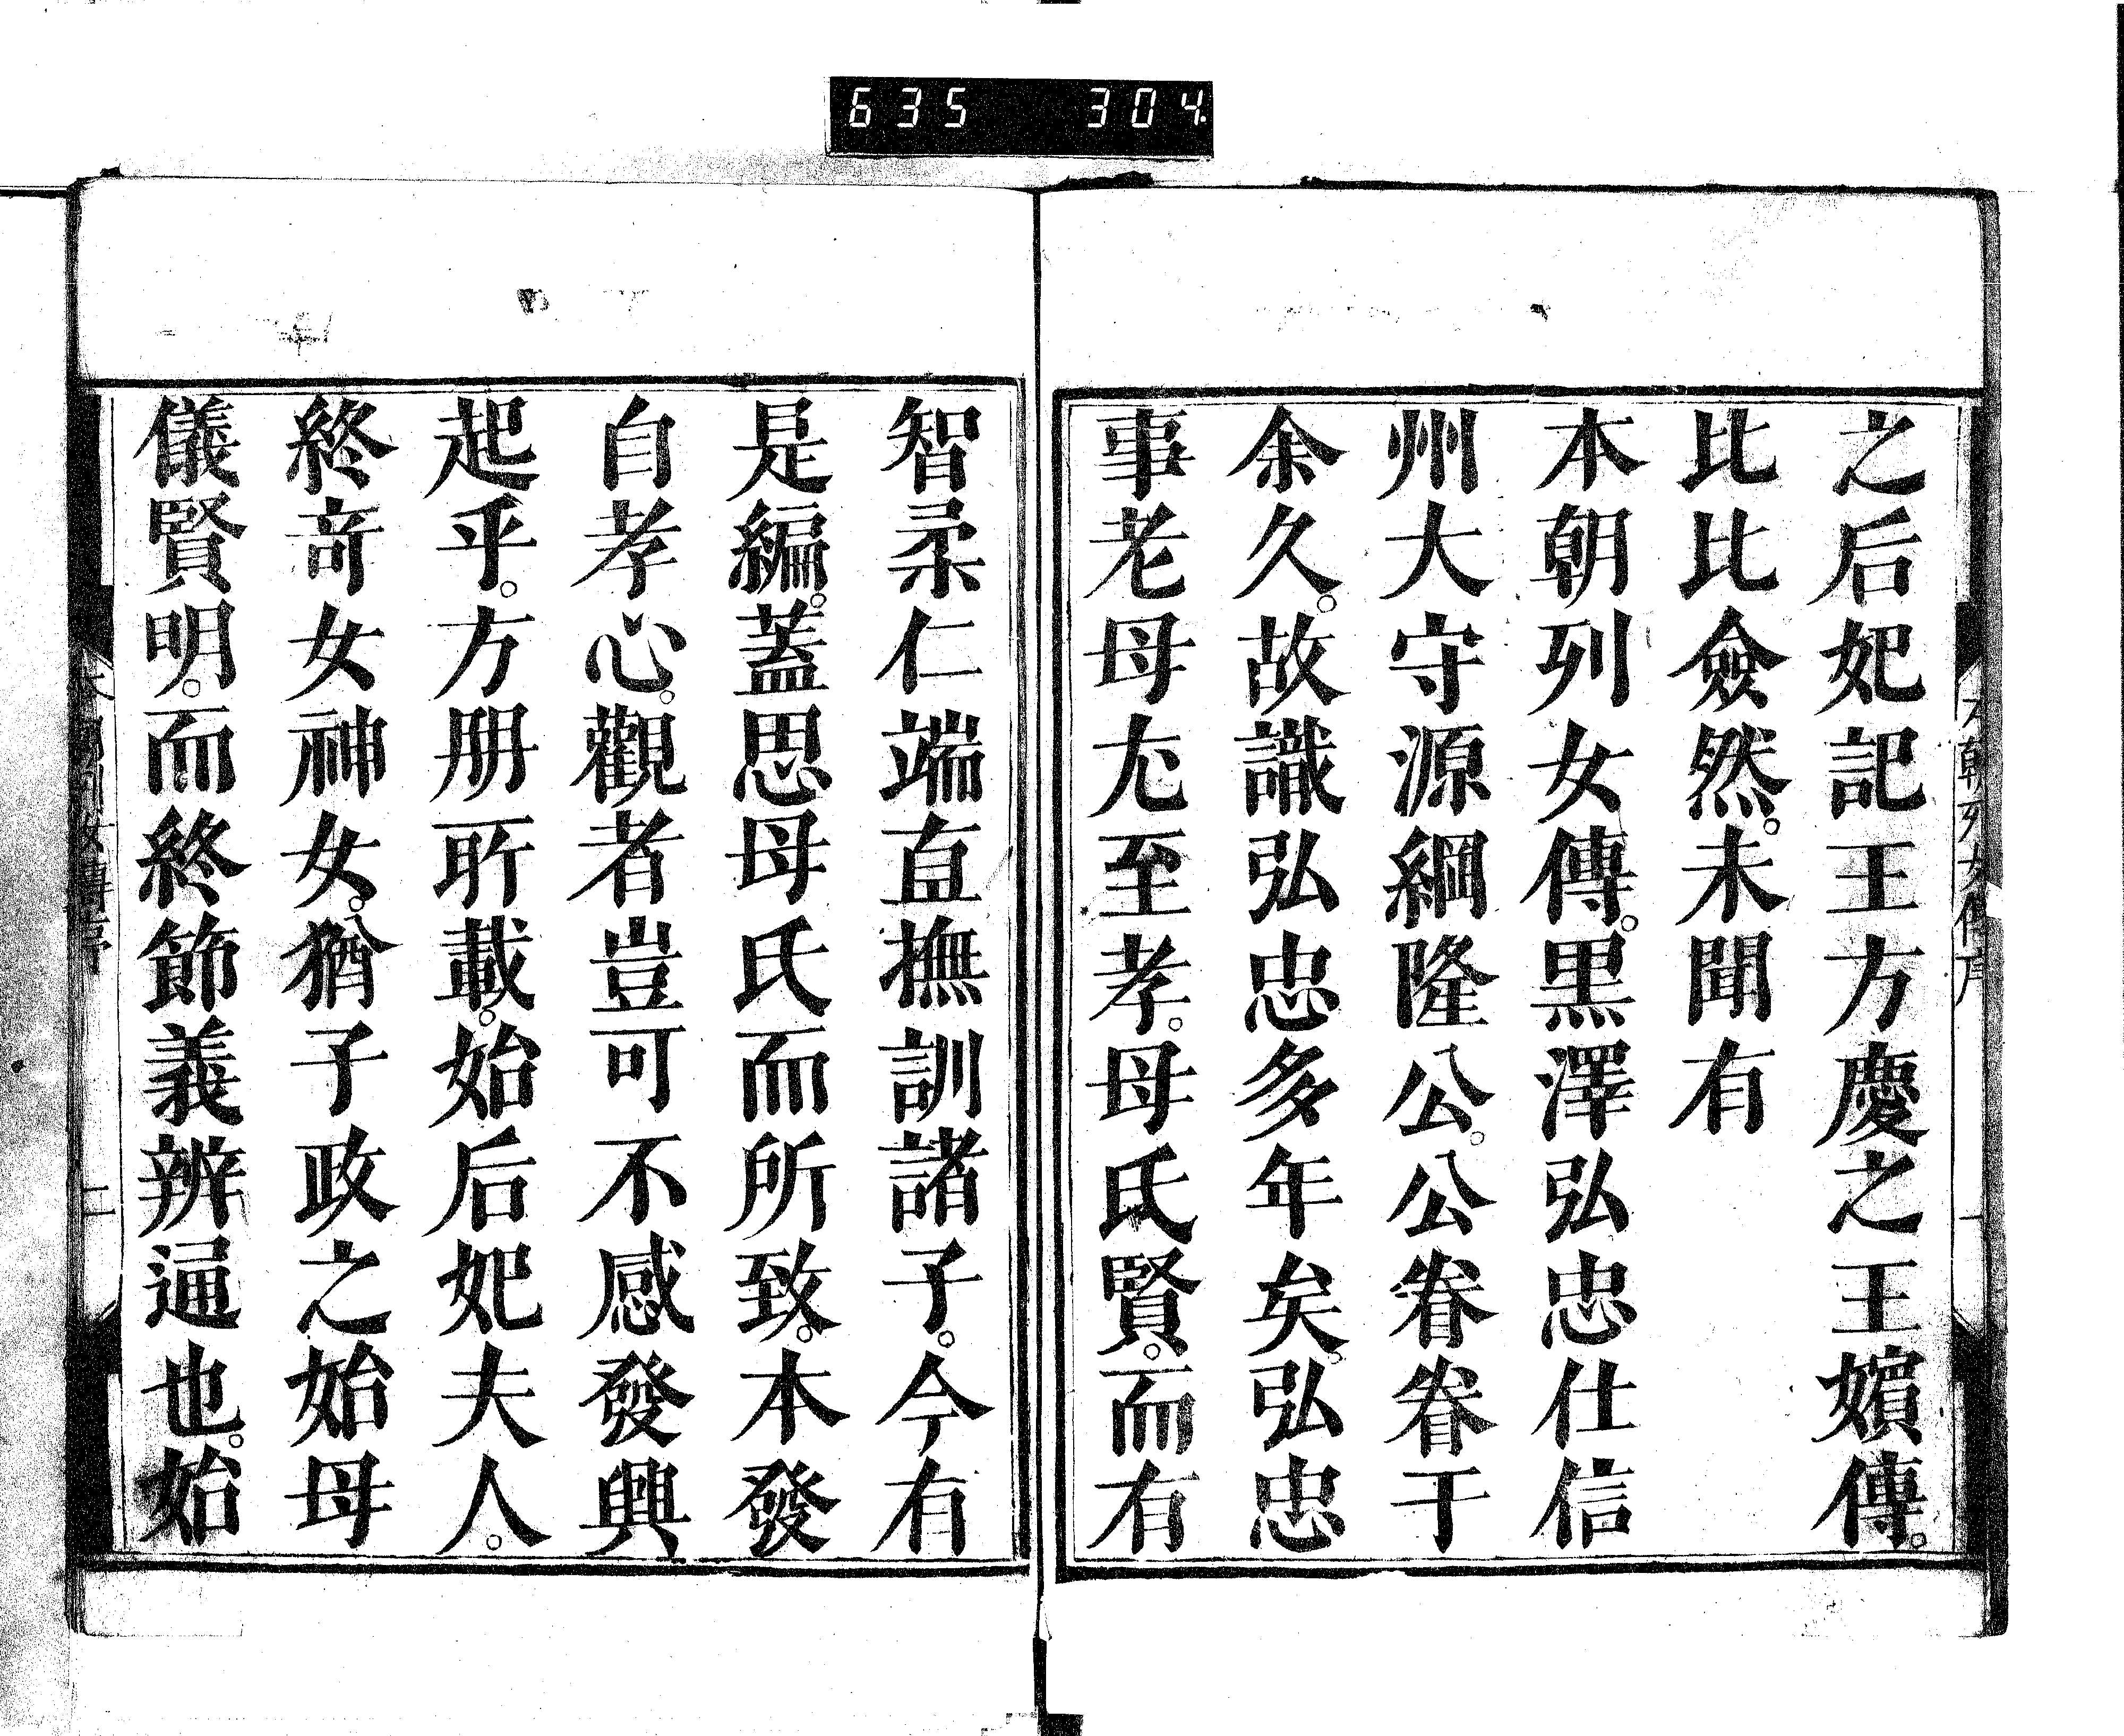 635 304
之后妃記王方慶之王嬪傳。
比比僉然。未聞有
本朝列女傳。黒澤弘忠仕信
州大守源綱隆公。公眷眷于
余久。故識弘忠多年矣。弘忠
事老母尢至孝。母氏賢。而有
智柔仁端直撫訓諸子。今有
是編。蓋思母氏而所致。本發
自孝心。觀者豈可不感發興
起乎。方册所載。始后妃夫人。
終竒女神女。猶子政之始母
儀賢明。而終節義辨逼也。始
本朝列女傳序